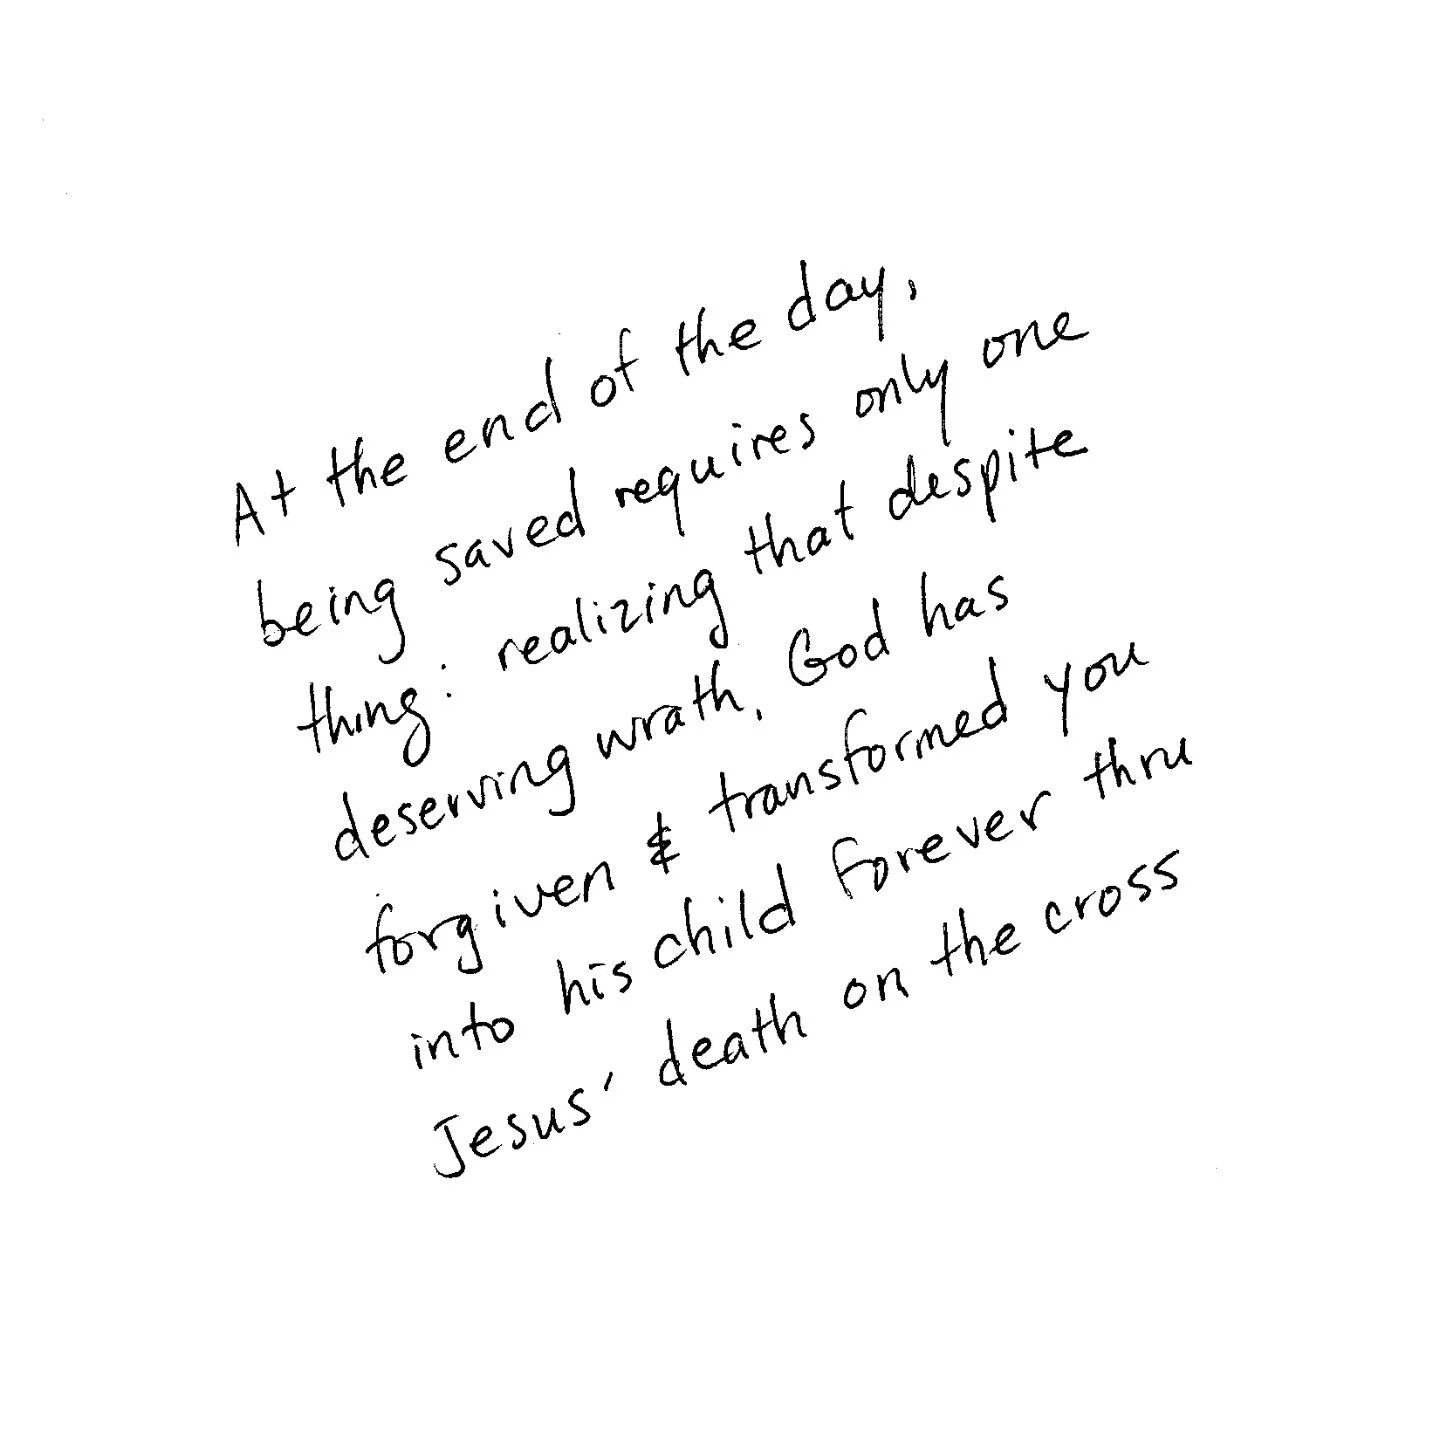 At the end of the day,
being saved requires only one
thing: realizing that despite
deserving wrath, God has
forgiven & transformed you
into his child forever thru
Jesus' death on the cross